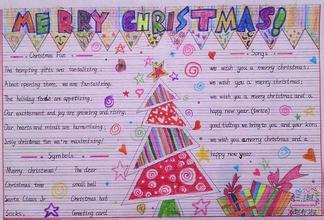 MERRY CHRISTMAS!
Christmas Fun
The tempting gifts are tantalizing;
About opening them, we are fantasizing.
The holiday foods are appetizing;
Our excitement and joy are growing and rising.
Our hearts and minds are harmonizing;
Jolly christmas fun we're maximizing!
Symbols
Merry Christmas! The deer
Christmas tree small bell
Santa Claus Christmas hat
Socks, Greeting card
Songs
we wish you a merry christmas;
we wish you a merry christmas;
we wish you a merry christmas and a
happy new year. (twice)
good tidings we bring to you and your kin;
we wish you a merry christmas and a
happy new year.